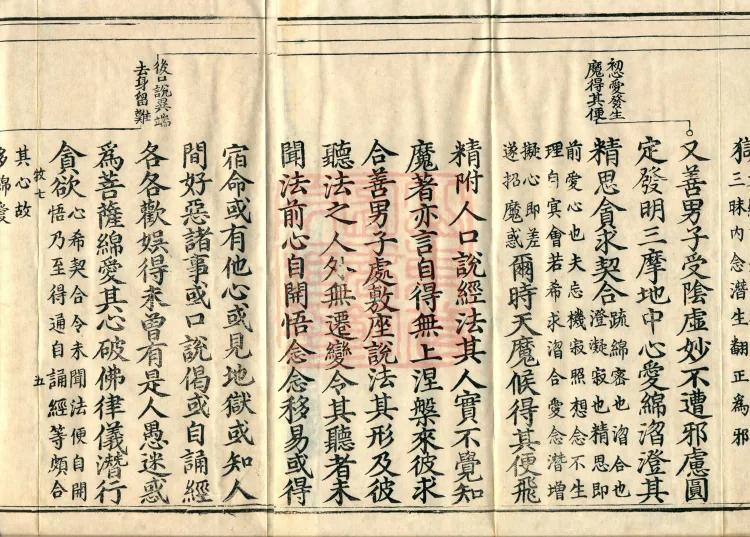 三昧内念潜生翻正為邪
初愛發生
魔得其便
又善男子受陰虛妙不遭邪慮圓
定發明三摩地中心愛綿㴠澄其
精思貪求契合疏綿密也㴠合也
澄凝寂也精思即
前愛心也夫忘機寂照想念不生
理自冥會若希求㴠合愛念潜增
擬心即差
遂招魔惑爾時天魔候得其便飛
精附人口說經法其人實不覺知
魔著亦言自得無上涅槃來彼求
合善男子處敷座說法其形及彼
聽法之人外無遷變令其聽者未
聞法前心自開悟念念移易或得
宿命或有他心或見地獄或知人
間好惡諸事或口說偈或自誦經
後口說異端
去身留難
各各歡娛得未曾有是人愚迷惑
為菩薩綿愛其心破佛律儀潜行
貪欲心希契合令未聞法便自開
悟乃至得通自誦經等頗合
其心故
多綿愛
教七
五